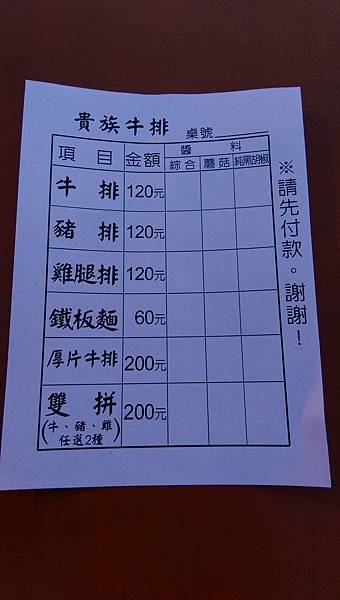 貴族牛排 桌號
項目 金額 醬料
綜合 蘑菇 純黑胡椒
牛排 120元
豬排 120元
雞腿排 120元
鐵板麵 60元
厚片牛排 200元
雙拼 200元
(牛、豬、雞
任選2種)
※請先付款。謝謝！